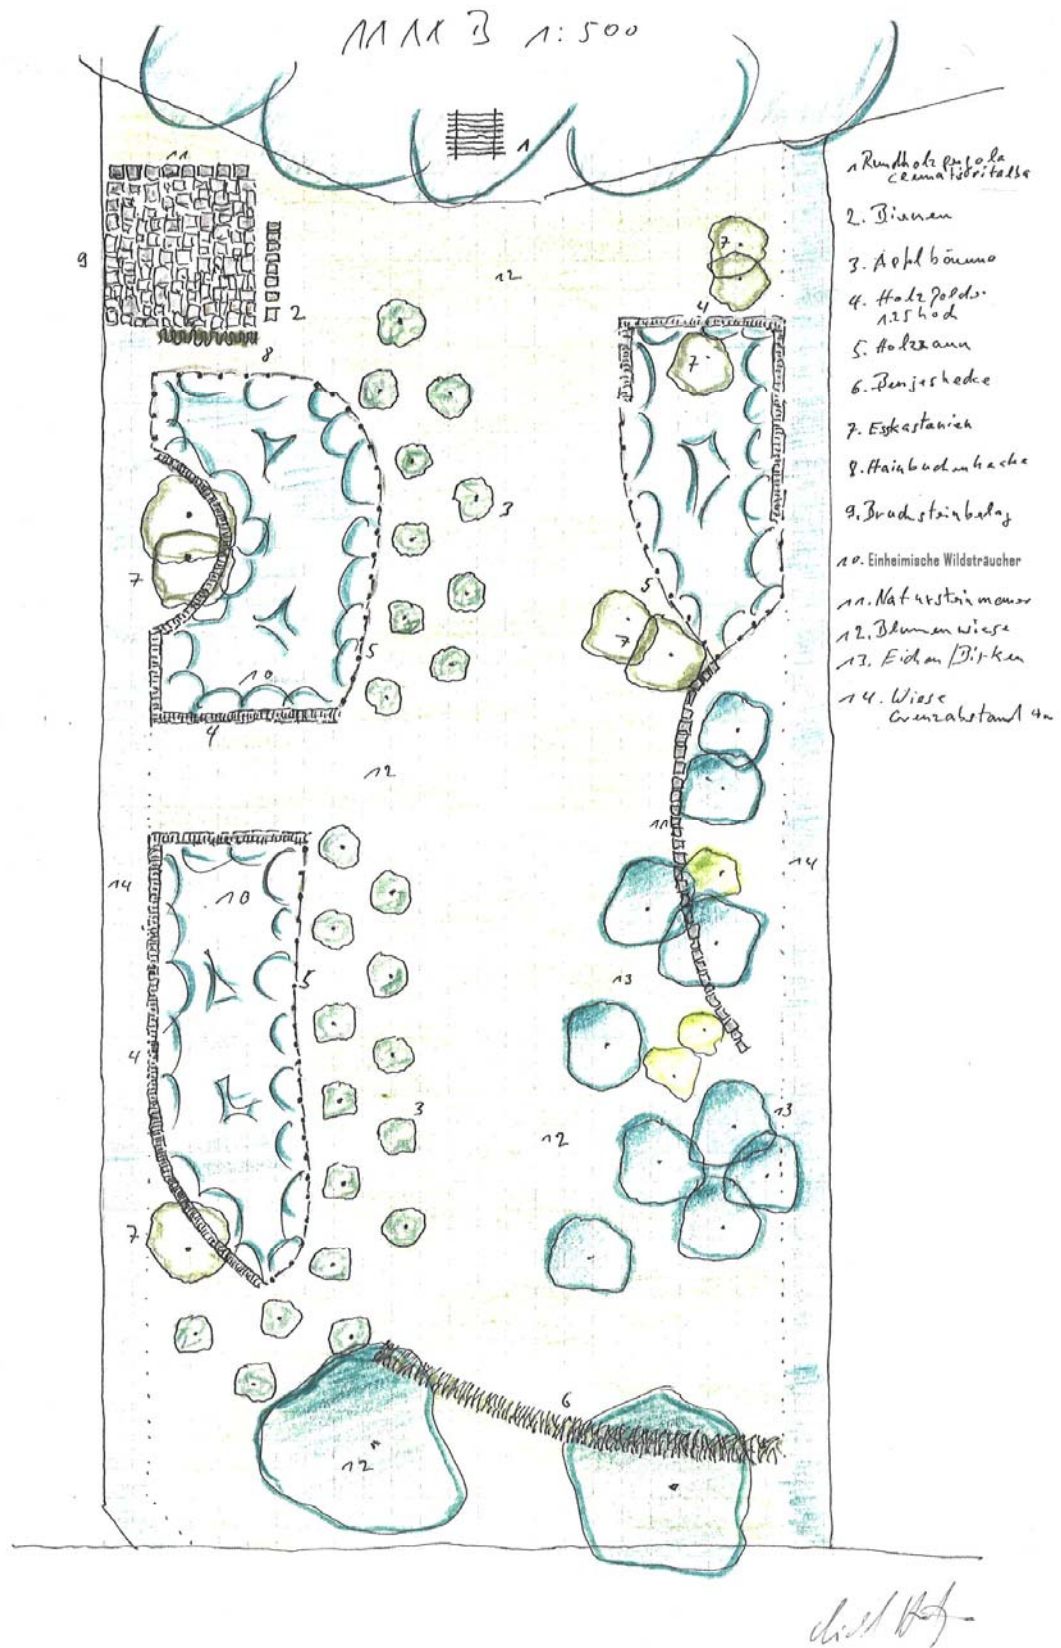 1111 B 1:500
1
11
9
2
12
8
7
4
7
3
5
7
10
4
5
7
12
11
14
14
10
5
13
4
3
12
13
7
6
12
1 Rundholzpergola
2. Bienen
3. Apfelbäume
4.
5. Holzzaun
6. Benjeshecke
7. Esskastanien
8. Hainbuchenhecke
9. Bruchsteinbelag
10. Einheimische Wildsträucher
11. Natursteinmauer
12. Blumenwiese
13. Eichen/Birken
14. Wiese
Grenzabstand 4m